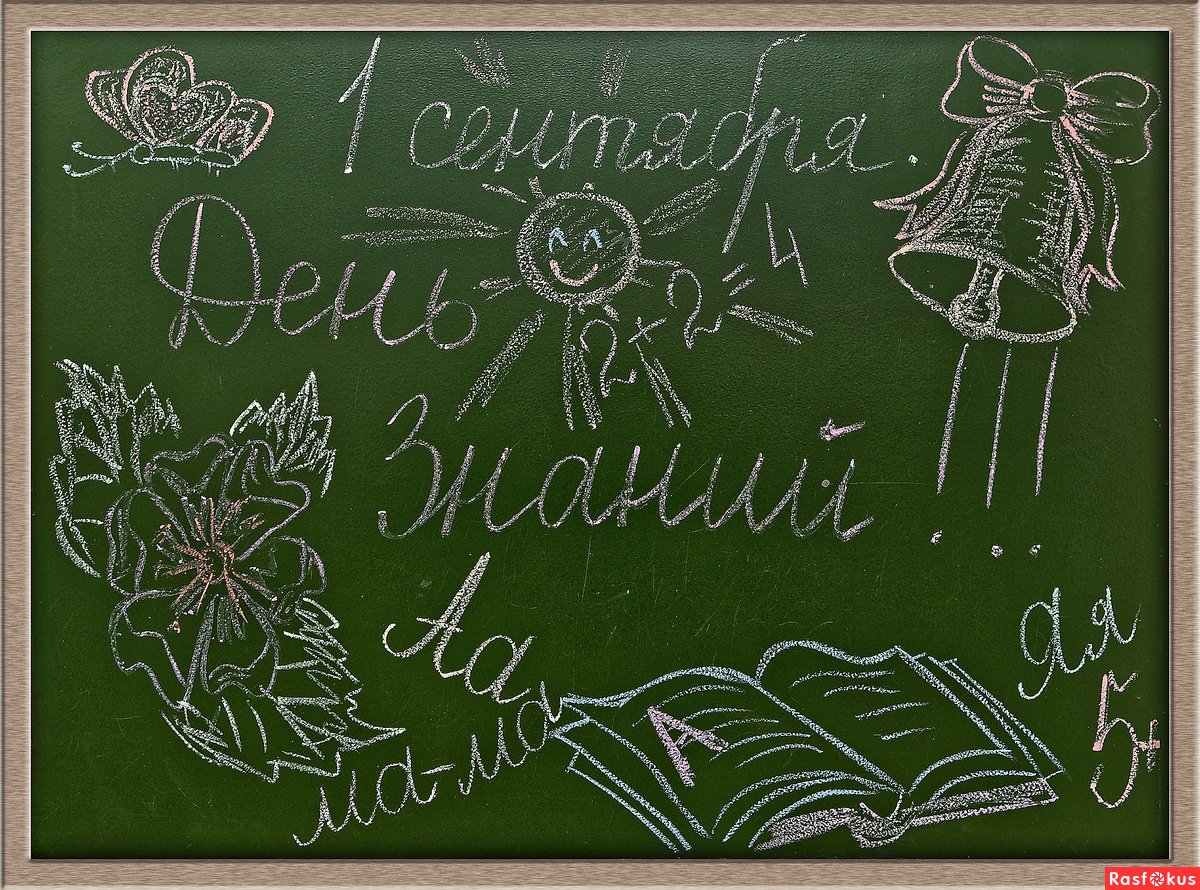 1 сентября.
День
2+2=4
Знаний!...
Аа
ма-ма
А
Яя
5+
Rasfokus